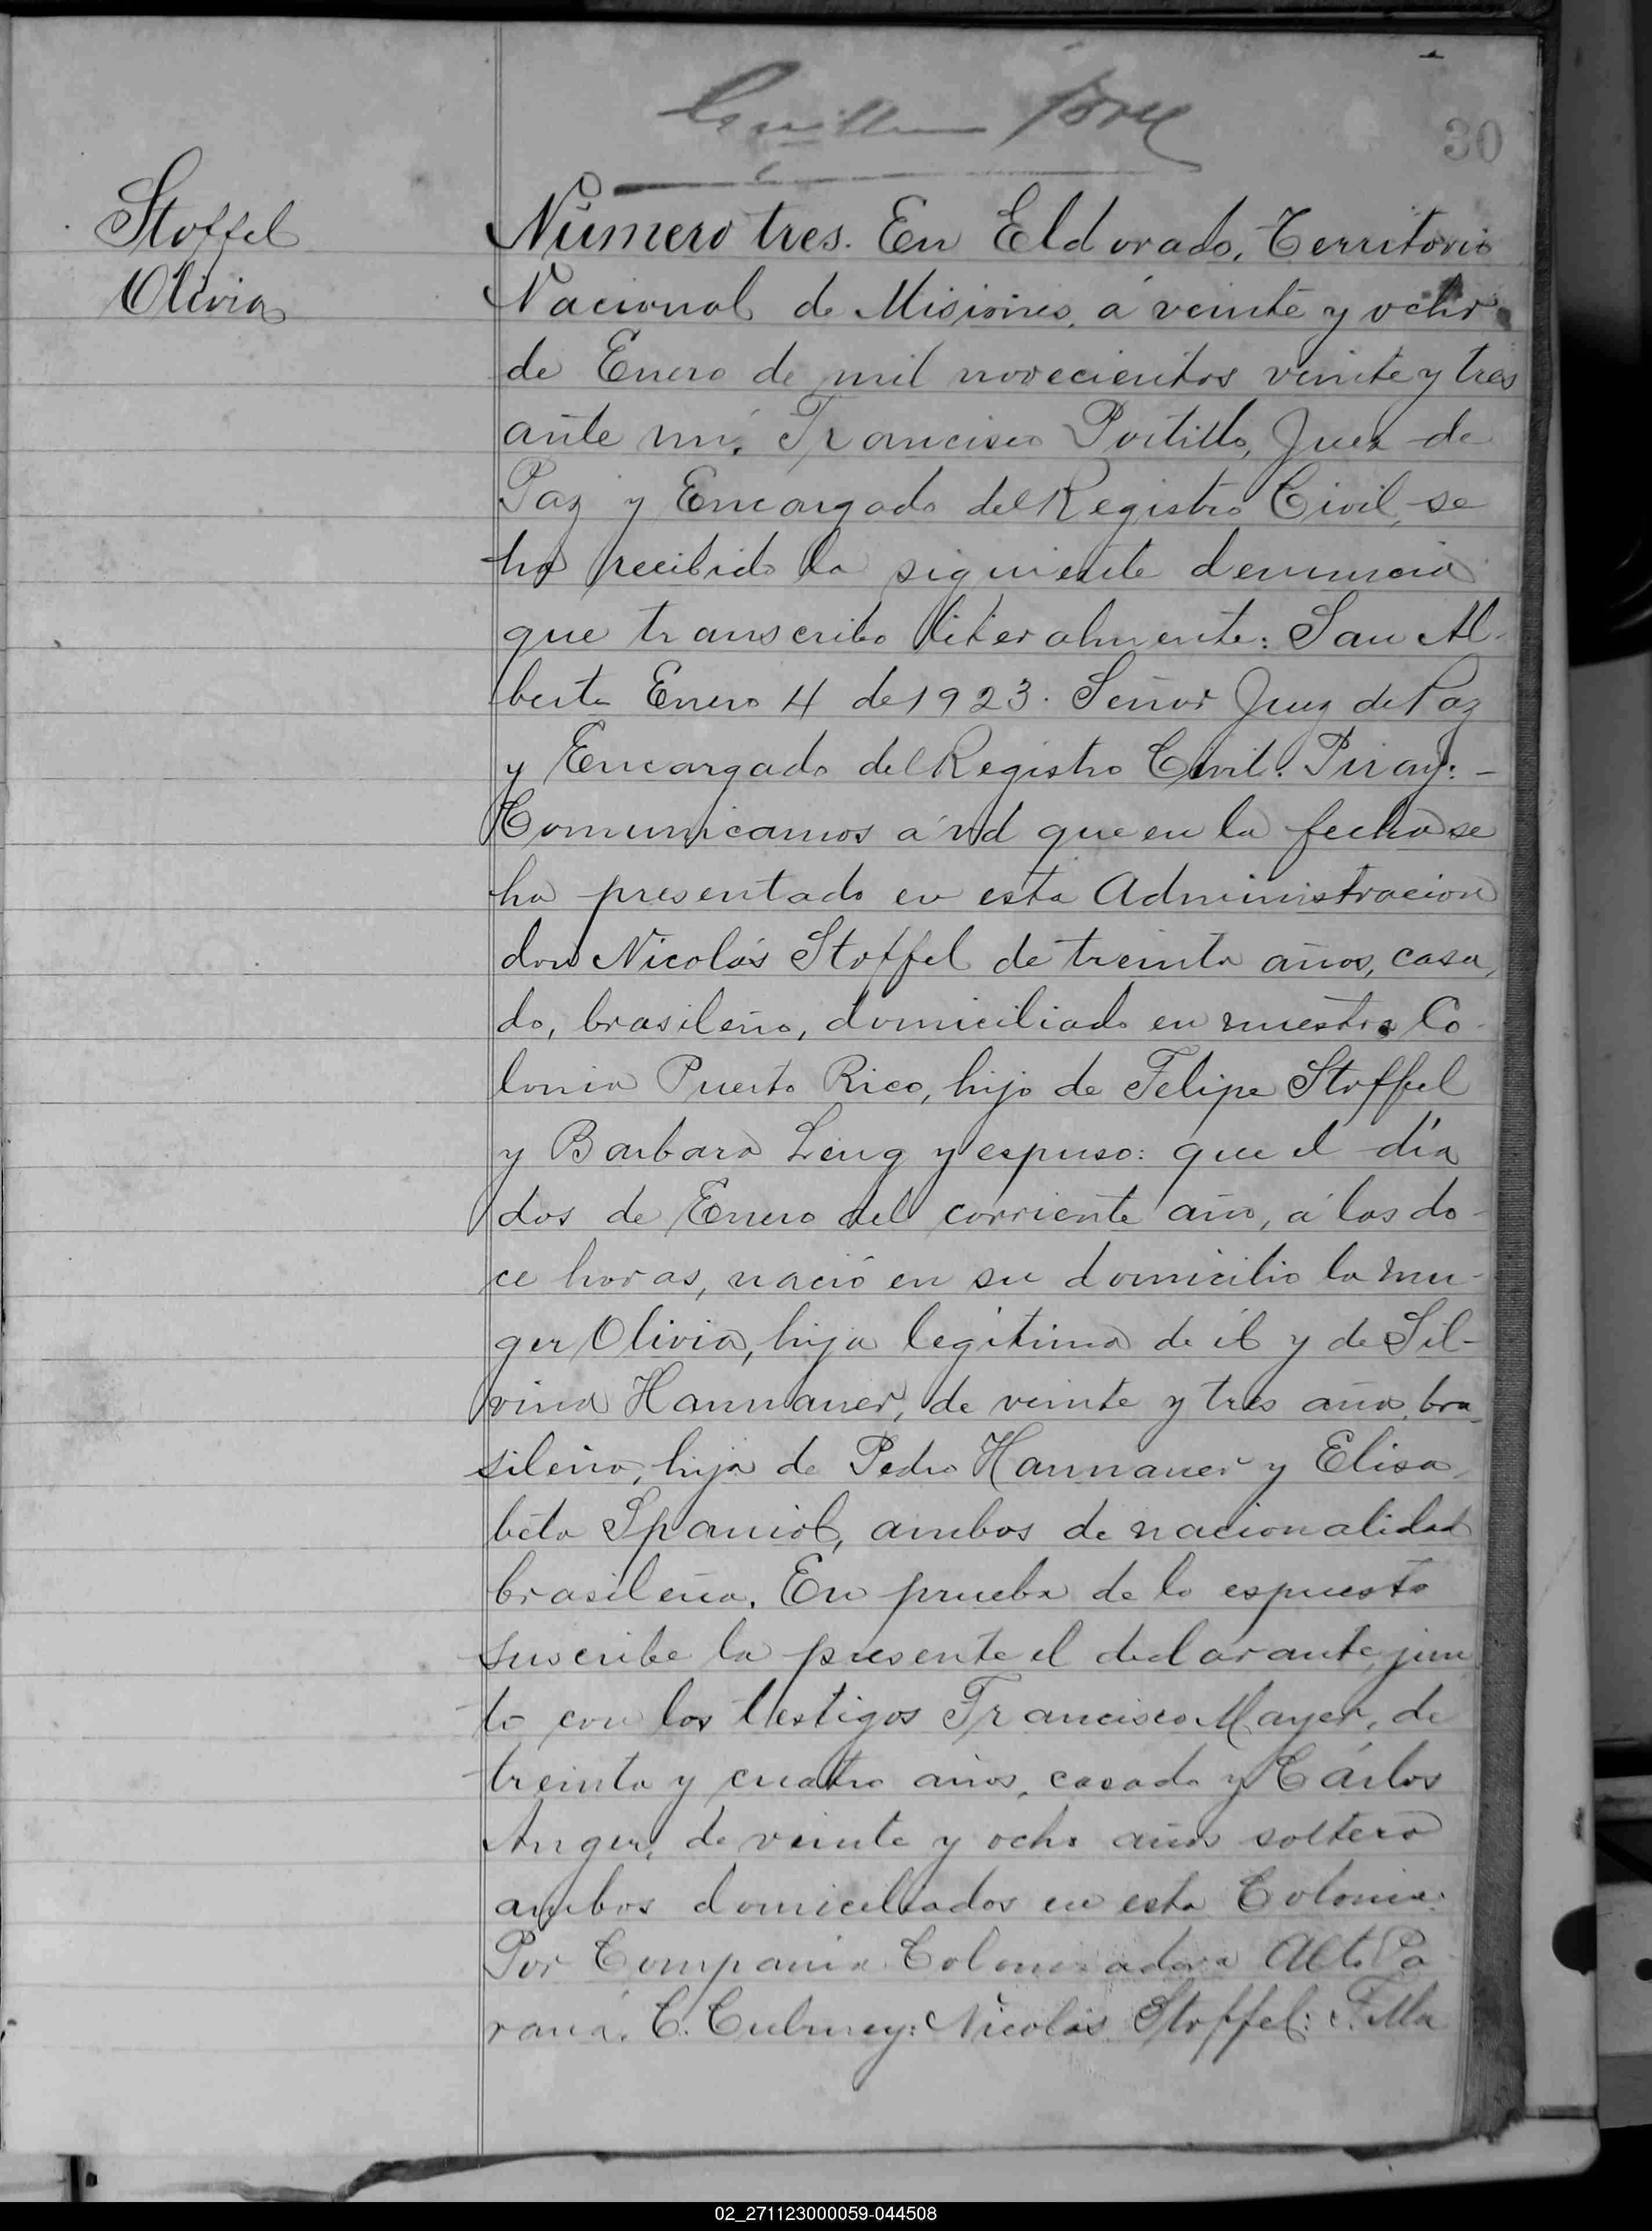 30
Stoffel
Olivia
Número tres. En Eldorado, Territorio
Nacional de Misiones, á veinte y ocho
de Enero de mil novecientos veinte y tres
ante mí, Francisco Portillo, Juez de
Paz y Encargado del Registro Civil, se
ha recibido la siguiente denuncia
que transcribo literalmente: San Al-
berto Enero 4 de 1923. Señor Juez de Paz
y Encargado del Registro Civil. Piray: -
Comunicamos á vd que en la fecha se
ha presentado en esta Administracion
don Nicolás Stoffel de treinta años, casa-
do, brasileño, domiciliado en nuestra Co-
lonia Puerto Rico, hijo de Felipe Stoffel
y Barbara Leng y espuso: que el día
dos de Enero del corriente año, á las do-
ce horas, nació en su domicilio la mu-
ger Olivia, hija legítima de él y de Sil-
vina Hannauer, de veinte y tres años, bra-
sileña, hija de Pedro Hannauer y Elisa-
beta Spaniol, ambos de nacionalidad
brasileña. En prueba de lo espuesto
suscribe la presente el declarante, jun-
to con los testigos Francisco Mayer, de
treinta y cuatro años, casado y Cárlos
Anger, de veinte y ocho años soltero
ambos domiciliados en esta Colonia.
Por Compania Colonizadora Alto Pa-
raná. C. Culmey: Nicolás Stoffel: F. Ma
02_271123000059-044508